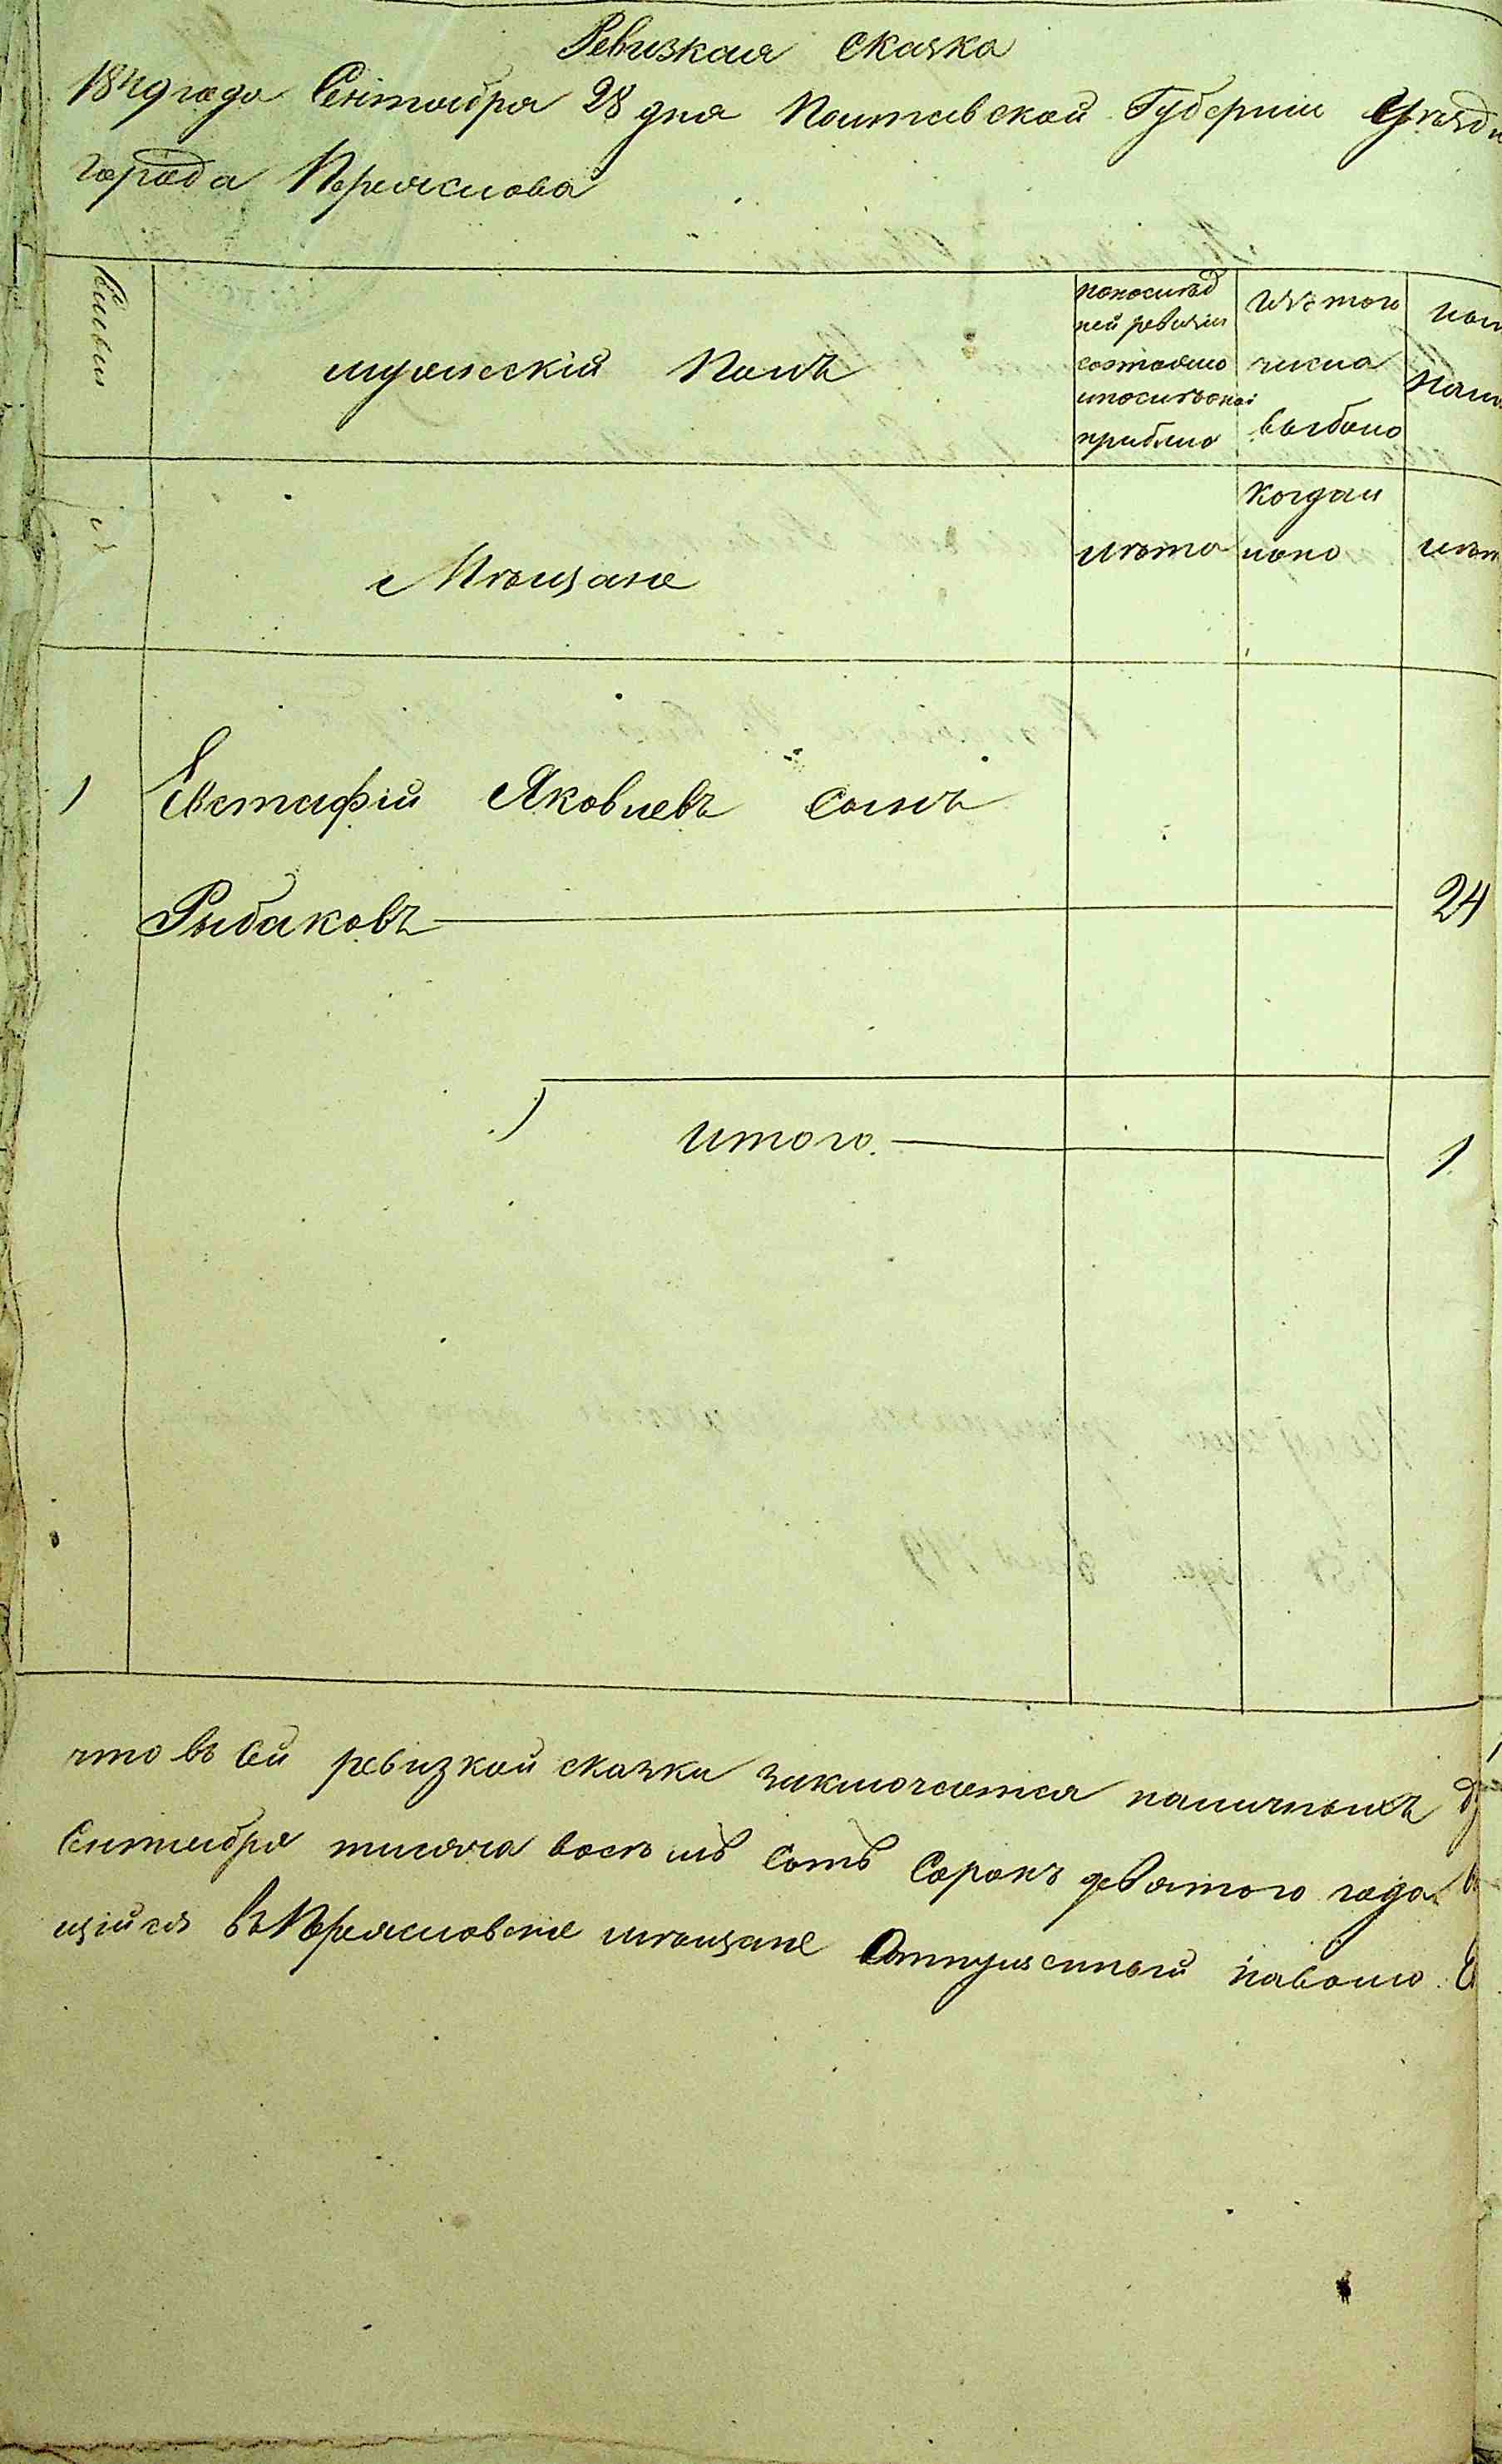 Ревизкая Сказка
1849 года Сентября 28 дня Полтавской Губернии Уѣздн
города Переяслова
Семьи
мужескій Полъ
попослѣд
ней ревизіи
состояло
ипослѣ оной
прибыло
Изъ того
числа
выбыло
Мѣщане
лѣта
Когда и
лѣт
1 Евстафій Яковлевъ Сынъ
Рыбаковъ 24
итого 1
что въ сей ревизкой сказки заключается наличныхъ
Сентября тысяча восемь сотъ Сорокъ девятого года
щійся въ Переясловские мѣщане Отпущенный наволю